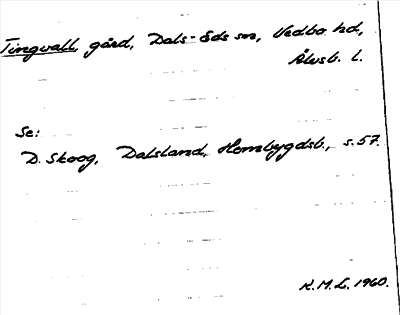 Tingvall, gård, Dals-Eds sn, Vedbo hd,
Älvsb. l.
Se:
D. Skoog, Dalsland, Hembygdsb., s. 57.
K.M.L. 1960.